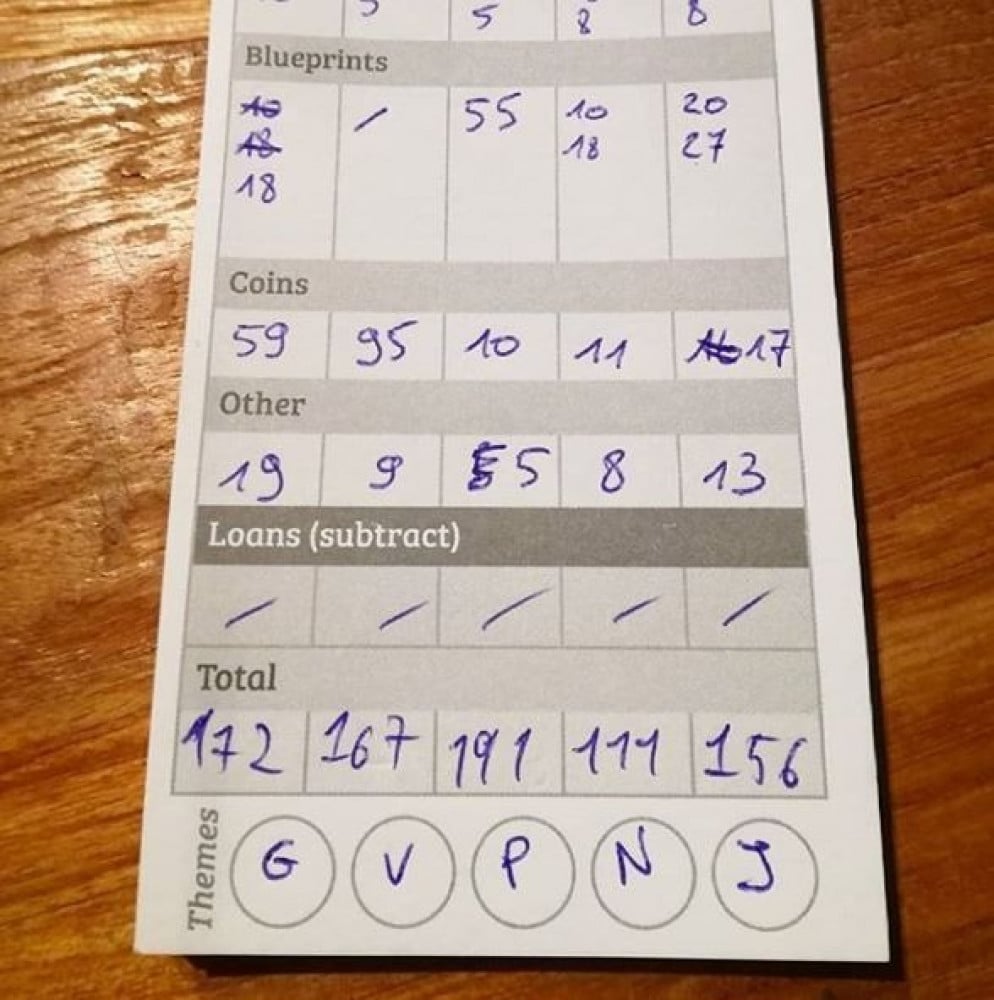 5 5 8 8
Blueprints
10 / 55 10 20
18 18 27
18
Coins
59 95 10 11 17
Other
19 9 5 8 13
Loans (subtract)
/ / / / /
Total
172 167 191 111 156
Themes
G V P N J